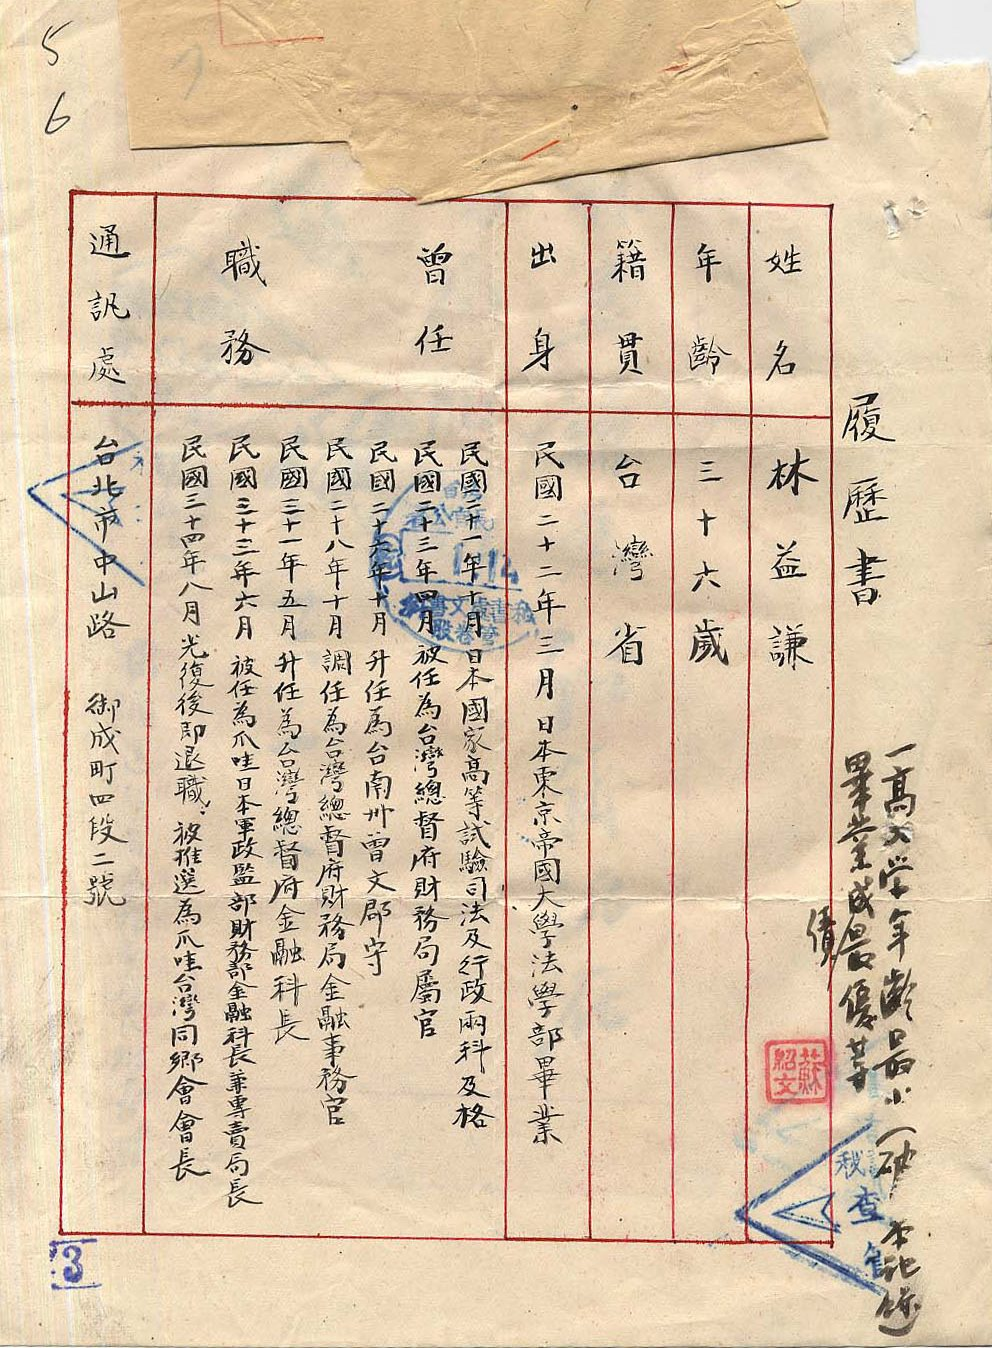 履歷書
一高大学年齡最小(破本記錄)
畢業成最優等
績
姓名 林益謙
年齡 三十六歲
籍貫 台灣省
出身 民國二十二年三月日本東京帝國大學法學部畢業
曾任職務
民國二十一年十月日本國家高等試驗司法及行政兩科及格
民國二十三年四月被任為台灣總督府財務局屬官
民國二十六年十月升任為台南州曾文郡守
民國二十八年十月調任為台灣總督府財務局金融事務官
民國三十一年五月升任為台灣總督府金融科長
民國三十三年六月被任為爪哇日本軍政監部財務部金融科長兼專賣局長
民國三十四年八月光復後即退職、被推選為爪哇台灣同鄉會會長
通訊處 台北市中山路 御成町四段二號
蘇紹文
查
1.14
管卷股
5
6
3